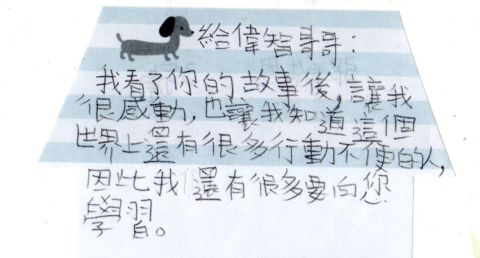 給偉智哥哥：
我看了你的故事後，讓我
很感動，也讓我知道這個
世界上還有很多行動不便的人，
因此我還有很多要向您
學習。